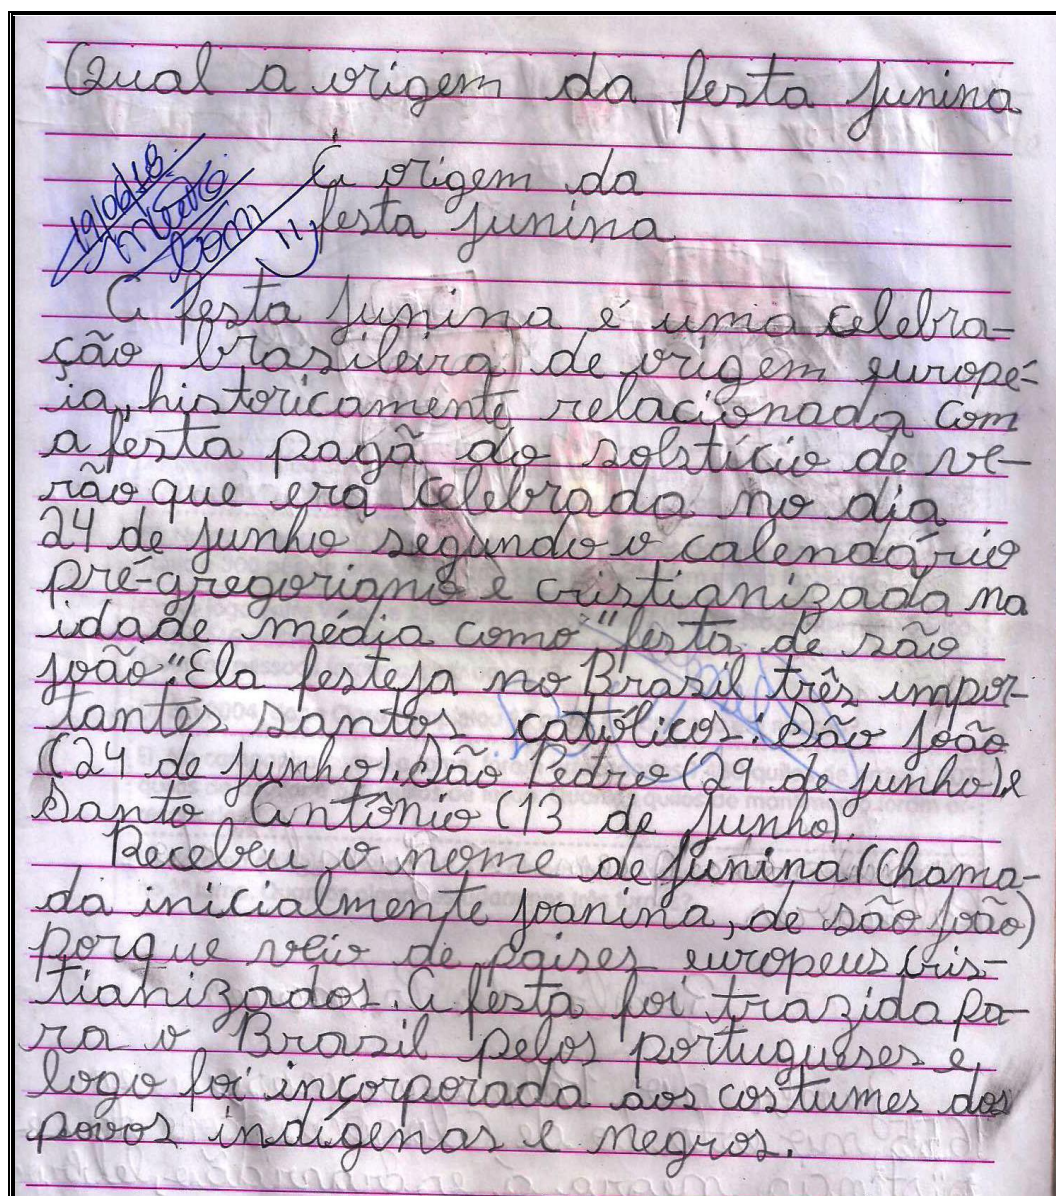 Qual a origem da festa junina
19/06/18
Muito
Bom!
A origem da
festa junina
A festa junina é uma celebra-
ção brasileira de origem européia-
ia, historicamente relacionada com
a festa pagã do solstício de ve-
rão que era celebrada no dia
24 de junho segundo o calendário
pré-gregoriano e cristianizada na
idade média como "festa de são
joão". Ela festeja no Brasil três impor-
tantes santos católicos: São João
(24 de junho), São Pedro (29 de junho) e
Santo Antônio (13 de junho).
Recebeu o nome de junina (Chama-
da inicialmente joanina, de são joão)
porque veio de países europeus cris-
tianizados. A festa foi trazida pa-
ra o Brasil pelos portugueses e
logo foi incorporada aos costumes dos
povos indígenas e negros.